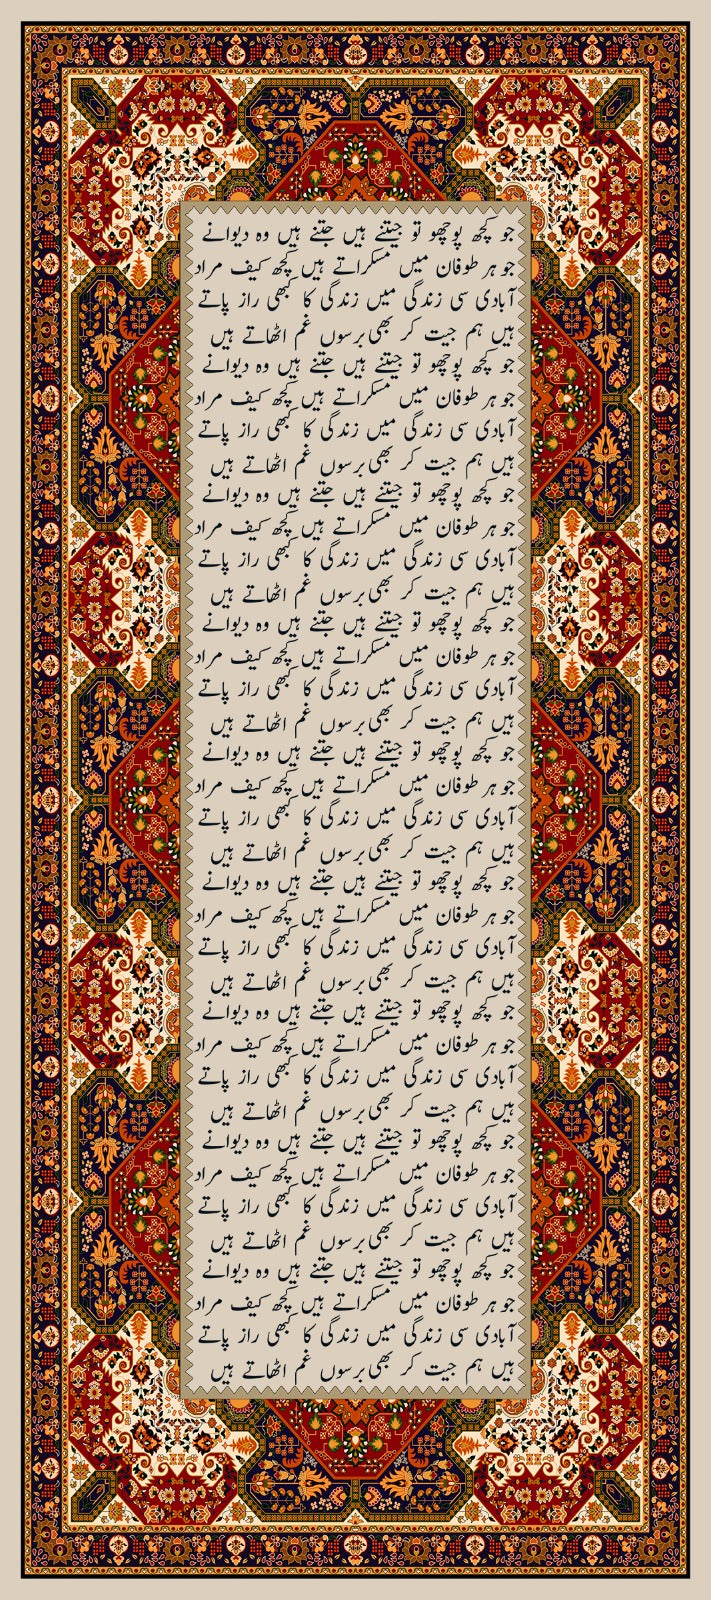 جو کچھ پوچھو تو جیتنے ہیں جتنے ہیں وہ دیوانے
جو ہر طوفان میں مسکراتے ہیں کچھ کیف مراد
آبادی سی زندگی میں زندگی کا کبھی راز پاتے
ہیں ہم جیت کر بھی برسوں غم اٹھاتے ہیں
جو کچھ پوچھو تو جیتنے ہیں جتنے ہیں وہ دیوانے
جو ہر طوفان میں مسکراتے ہیں کچھ کیف مراد
آبادی سی زندگی میں زندگی کا کبھی راز پاتے
ہیں ہم جیت کر بھی برسوں غم اٹھاتے ہیں
جو کچھ پوچھو تو جیتنے ہیں جتنے ہیں وہ دیوانے
جو ہر طوفان میں مسکراتے ہیں کچھ کیف مراد
آبادی سی زندگی میں زندگی کا کبھی راز پاتے
ہیں ہم جیت کر بھی برسوں غم اٹھاتے ہیں
جو کچھ پوچھو تو جیتنے ہیں جتنے ہیں وہ دیوانے
جو ہر طوفان میں مسکراتے ہیں کچھ کیف مراد
آبادی سی زندگی میں زندگی کا کبھی راز پاتے
ہیں ہم جیت کر بھی برسوں غم اٹھاتے ہیں
جو کچھ پوچھو تو جیتنے ہیں جتنے ہیں وہ دیوانے
جو ہر طوفان میں مسکراتے ہیں کچھ کیف مراد
آبادی سی زندگی میں زندگی کا کبھی راز پاتے
ہیں ہم جیت کر بھی برسوں غم اٹھاتے ہیں
جو کچھ پوچھو تو جیتنے ہیں جتنے ہیں وہ دیوانے
جو ہر طوفان میں مسکراتے ہیں کچھ کیف مراد
آبادی سی زندگی میں زندگی کا کبھی راز پاتے
ہیں ہم جیت کر بھی برسوں غم اٹھاتے ہیں
جو کچھ پوچھو تو جیتنے ہیں جتنے ہیں وہ دیوانے
جو ہر طوفان میں مسکراتے ہیں کچھ کیف مراد
آبادی سی زندگی میں زندگی کا کبھی راز پاتے
ہیں ہم جیت کر بھی برسوں غم اٹھاتے ہیں
جو کچھ پوچھو تو جیتنے ہیں جتنے ہیں وہ دیوانے
جو ہر طوفان میں مسکراتے ہیں کچھ کیف مراد
آبادی سی زندگی میں زندگی کا کبھی راز پاتے
ہیں ہم جیت کر بھی برسوں غم اٹھاتے ہیں
جو کچھ پوچھو تو جیتنے ہیں جتنے ہیں وہ دیوانے
جو ہر طوفان میں مسکراتے ہیں کچھ کیف مراد
آبادی سی زندگی میں زندگی کا کبھی راز پاتے
ہیں ہم جیت کر بھی برسوں غم اٹھاتے ہیں